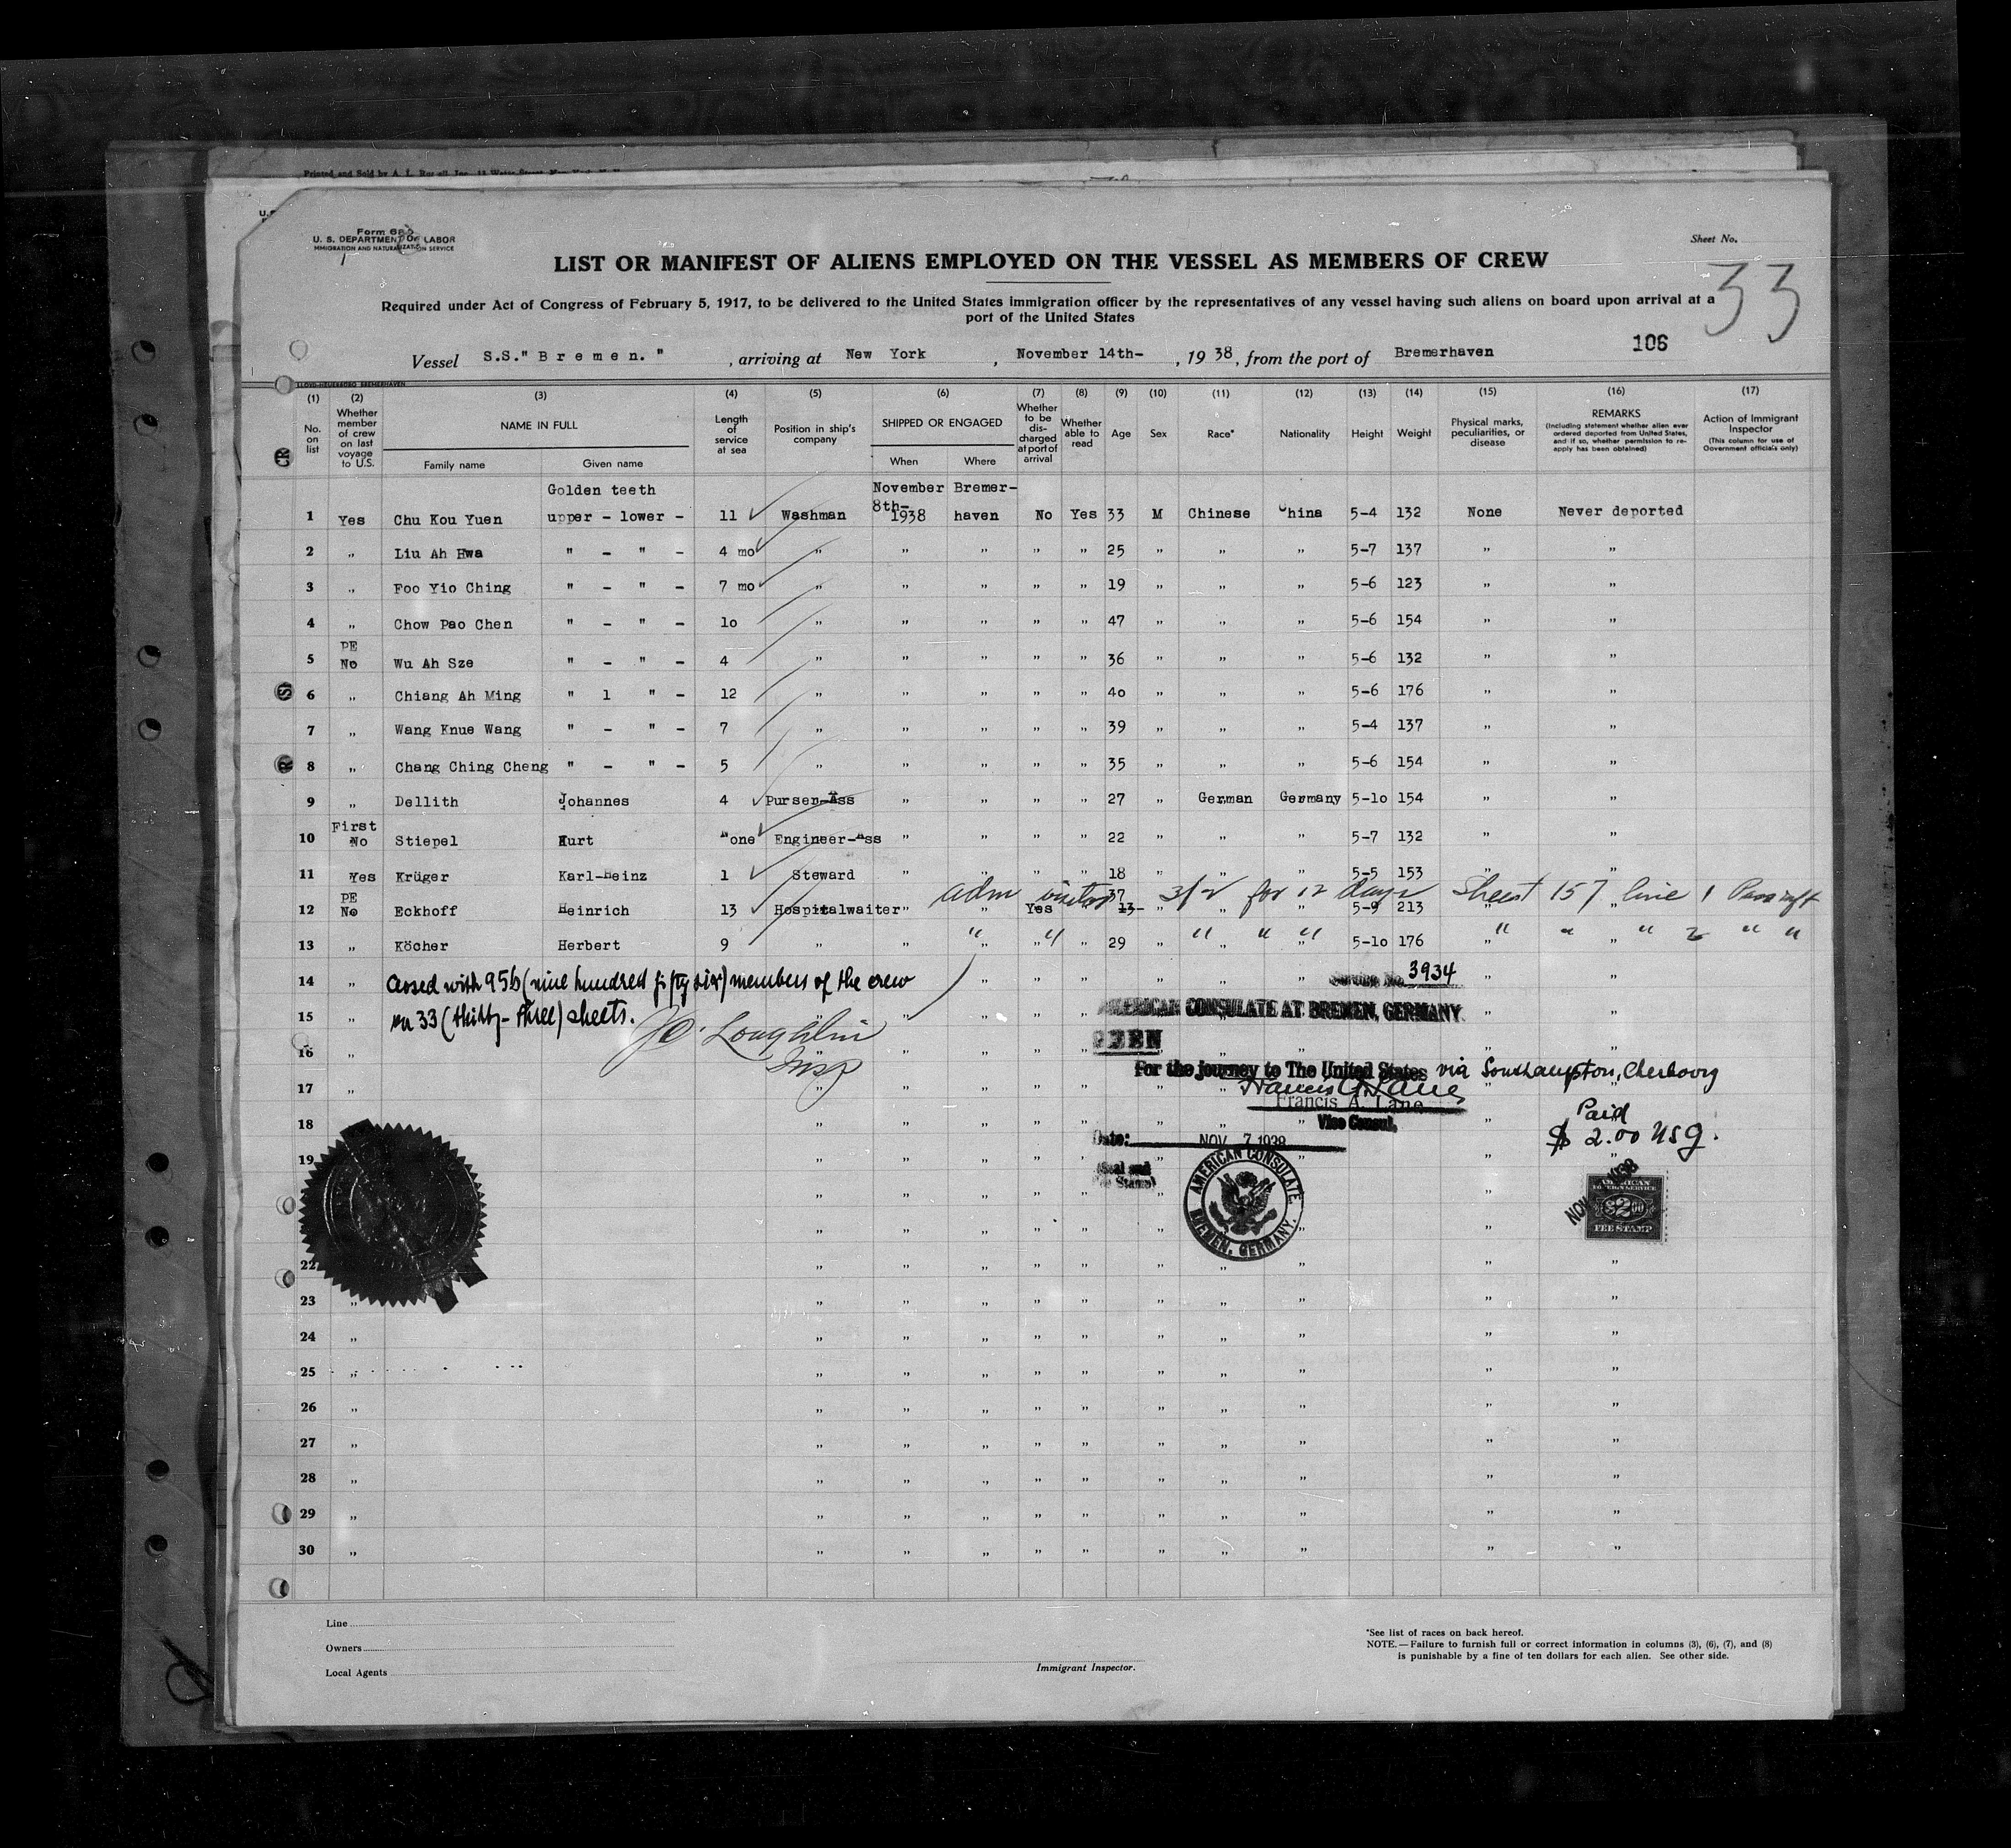 Printed and Sold by A. L.
Form 68
U. S. DEPARTMENT OF LABOR
IMMIGRATION AND NATURALIZATION SERVICE
Sheet No.
33
LIST OR MANIFEST OF ALIENS EMPLOYED ON THE VESSEL AS MEMBERS OF CREW
Required under Act of Congress of February 5, 1917, to be delivered to the United States immigration officer by the representatives of any vessel having such aliens on board upon arrival at a
port of the United States
106
Vessel S.S." B r e m e n. " , arriving at New York , November 14th- , 19 38, from the port of Bremerhaven
(1) (2) (3) (4) (5) (6) (7) (8) (9) (10) (11) (12) (13) (14) (15) (16) (17)
No. on list
Whether member of crew on last voyage to U.S.
NAME IN FULL
Family name Given name
Length of service at sea
Position in ship's company
SHIPPED OR ENGAGED
When Where
Whether to be discharged at port of arrival
Whether able to read
Age Sex Race* Nationality Height Weight
Physical marks, peculiarities, or disease
REMARKS
(Including statement whether alien ever ordered deported from United States, and if so, whether permission to re-apply has been obtained)
Action of Immigrant Inspector
(This column for use of Government officials only)
Golden teeth November Bremer-
8th-
1 Yes Chu Kou Yuen upper - lower - 11 Washman 1938 haven No Yes 33 M Chinese China 5-4 132 None Never deported
2 " Liu Ah Hwa " - " - 4 mo " " " " " 25 " " " 5-7 137 " "
3 " Foo Yio Ching " - " - 7 mo " " " " " 19 " " " 5-6 123 " "
4 " Chow Pao Chen " - " - 1o " " " " " 47 " " " 5-6 154 " "
PE
5 No Wu Ah Sze " - " - 4 " " " " " 36 " " " 5-6 132 " "
6 " Chiang Ah Ming " 1 " - 12 " " " " " 4o " " " 5-6 176 " "
7 " Wang Knue Wang " - " - 7 " " " " " 39 " " " 5-4 137 " "
8 " Chang Ching Cheng " - " - 5 " " " " " 35 " " " 5-6 154 " "
9 " Dellith Johannes 4 Purser-Ass " " " " 27 " German Germany 5-1o 154 " "
First
10 No Stiepel Kurt None Engineer-Ass " " " " 22 " " " 5-7 132 " "
11 Yes Krüger Karl-Heinz 1 Steward " " " " 18 " " " 5-5 153 " "
adm visitor 3/2 for 12 days Sheet 157 line 1
PE 37
12 No Eckhoff Heinrich 13 Hospitalwaiter " " Yes " 13- " " " 5-9 213 " "
13 " Köcher Herbert 9 " " " " " 29 " " " 5-1o 176 " "
" " " " " " " " 2 " "
14 " " " " " " " " "
closed with 956 (nine hundred fifty six) members of the crew
Service No. 3934
15 " " " " " " " " "
on 33 (thirty-three) sheets.
AMERICAN CONSULATE AT BREMEN, GERMANY
J O'Loughlin
Insp
SEEN
16 "
For the journey to The United States via Southampton, Cherbourg
17 "
Francis A. Lane
Francis A. Lane
Vice Consul.
Paid
$ 2.00 USG.
18
Date: NOV 7 1938
19
(Seal and
Fee Stamp)
AMERICAN CONSULATE
BREMEN, GERMANY.
NOV 1938
AMERICAN
FOREIGN SERVICE
$2.00
FEE STAMP
22 " " " " " " " " "
23 " " " " " " " " " "
24 " " " " " " " " " "
25 " " " " " " " " " "
26 " " " " " " " " " "
27 " " " " " " " " " "
28 " " " " " " " " " "
29 " " " " " " " " " "
30 " " " " " " " " " "
Line
Owners
Local Agents
Immigrant Inspector.
*See list of races on back hereof.
NOTE.—Failure to furnish full or correct information in columns (3), (6), (7), and (8)
is punishable by a fine of ten dollars for each alien. See other side.